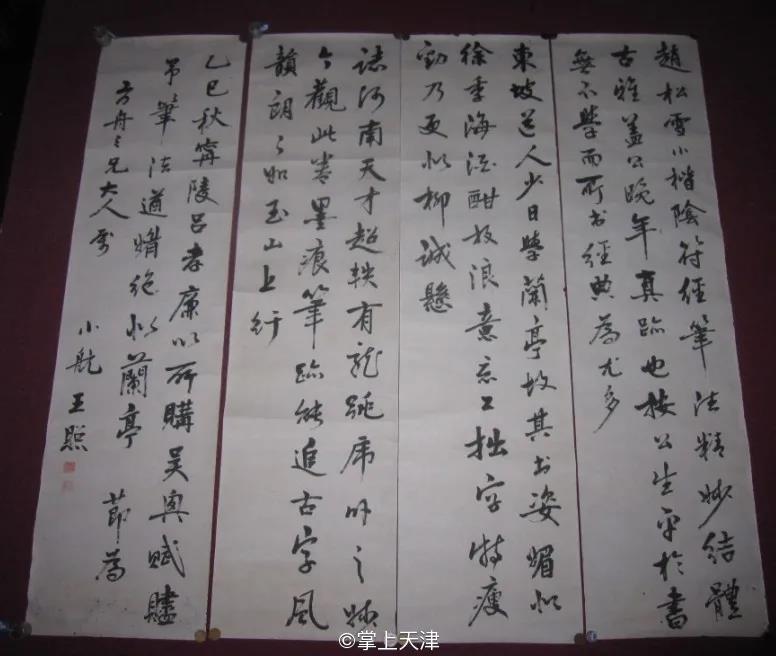 趙松雪小楷陰符經筆法精妙結體
古雅蓋公晚年真跡也按公生平於書
無不學而所書經典為尤多
東坡道人少日學蘭亭故其書姿媚似
徐季海酒酣放浪意忘工拙字特瘦
勁乃更似柳誠懸
河南天才超軼有龍跳虎臥之妙
今觀此卷墨痕筆跡能追古字風
韻朗々如玉山上行
乙巳秋寧陵呂孝廉以所購吳興賦
筆法遒媚絕似蘭亭 節為
方舟仁兄大人
小航王照
©掌上天津